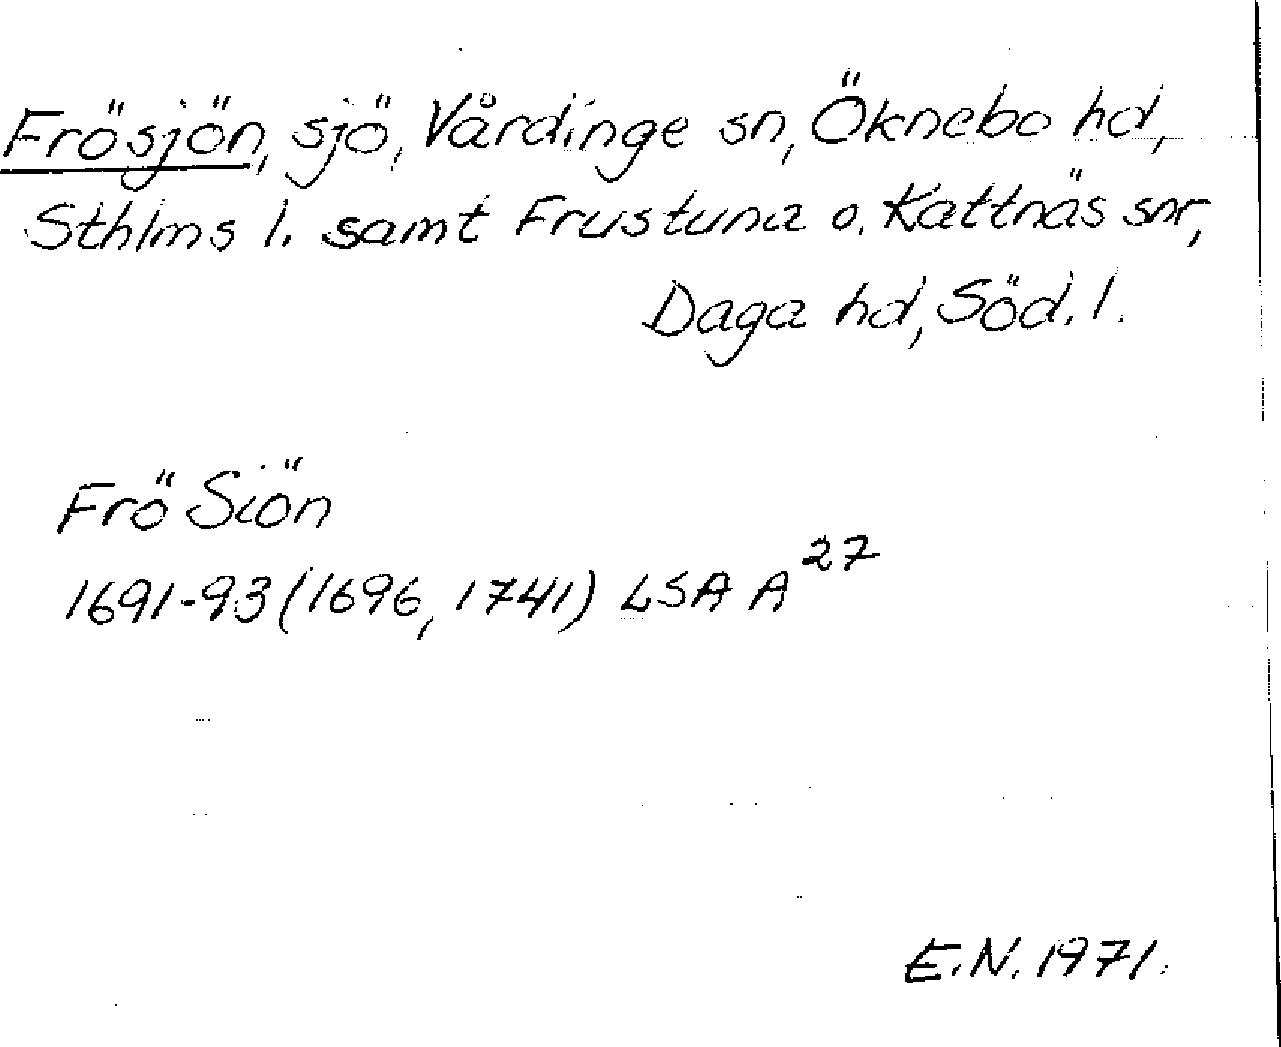 Frösjön, sjö, Vårdinge sn, Öknebo hd,
Sthlms l. samt Frustuna o. Kattnäs snr,
Daga hd, Söd. l.
Frö Siön
1691-93 (1696, 1741) LSA A 27
E.N. 1971.